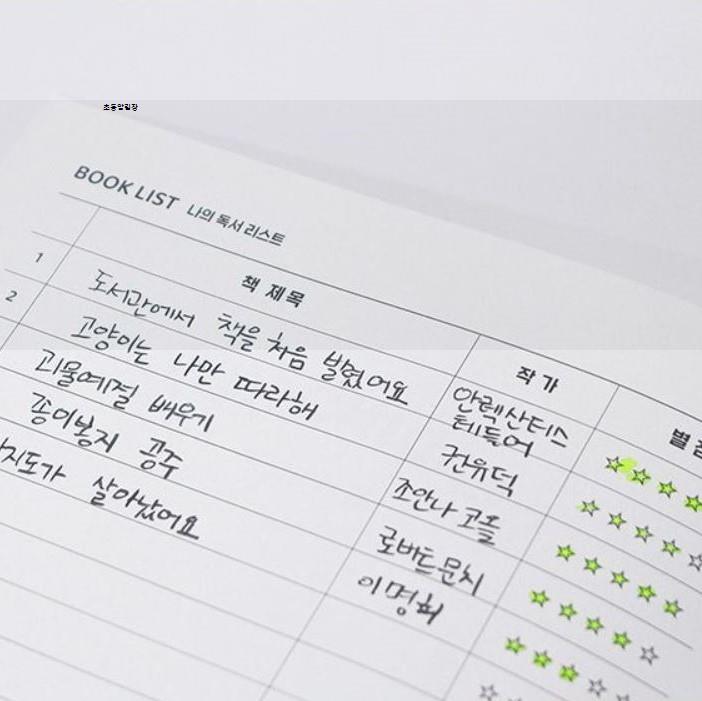 초등알림장
BOOK LIST 나의 독서 리스트
책 제목
작가
별점
1 도서관에서 책을 처음 빌렸어요
안렉산티스
테들어
2 고양이는 나만 따라해
권유덕
괴물예절 배우기
조안나 코올
종이봉지 공주
로버트문치
지도가 살아났어요
이명희